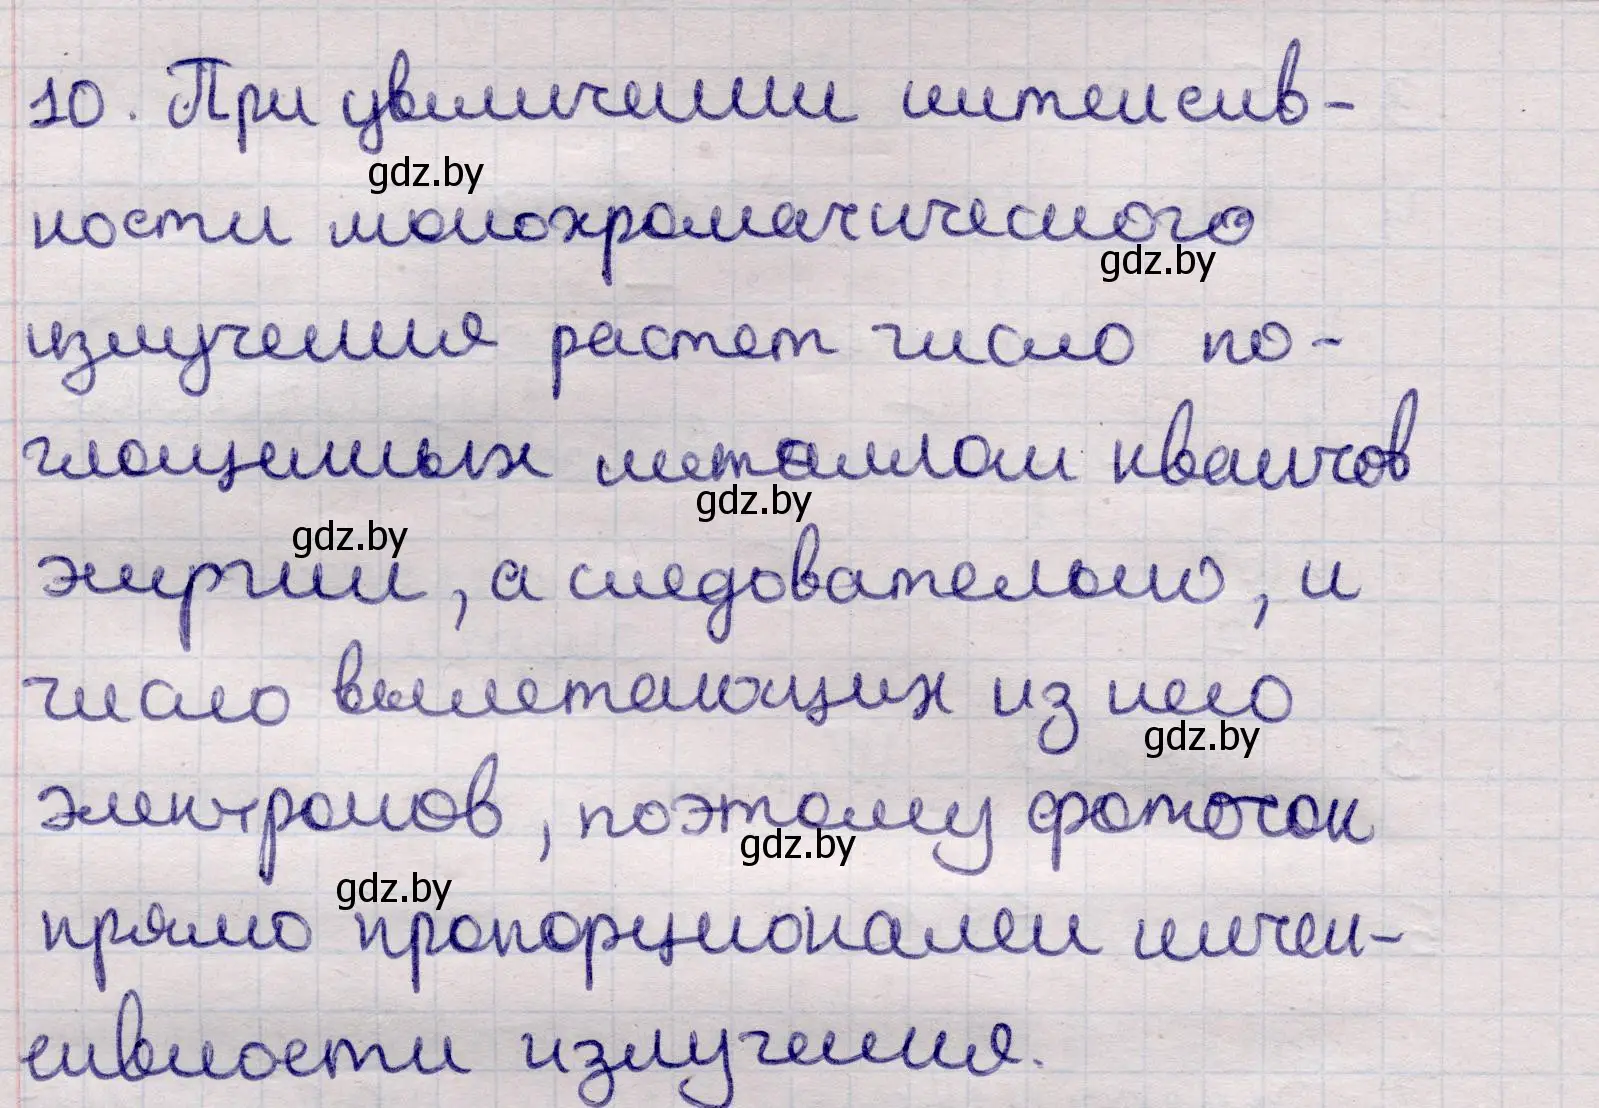 10. При увеличении интенсив-
gdz.by
ности монохроматического
gdz.by
излучения растет число по-
глощенных металлом квантов
gdz.by
gdz.by
энергии, а следовательно, и
число вылетающих из него
gdz.by
электронов, поэтому фототок
gdz.by
gdz.by
прямо пропорционален интен-
сивности излучения.